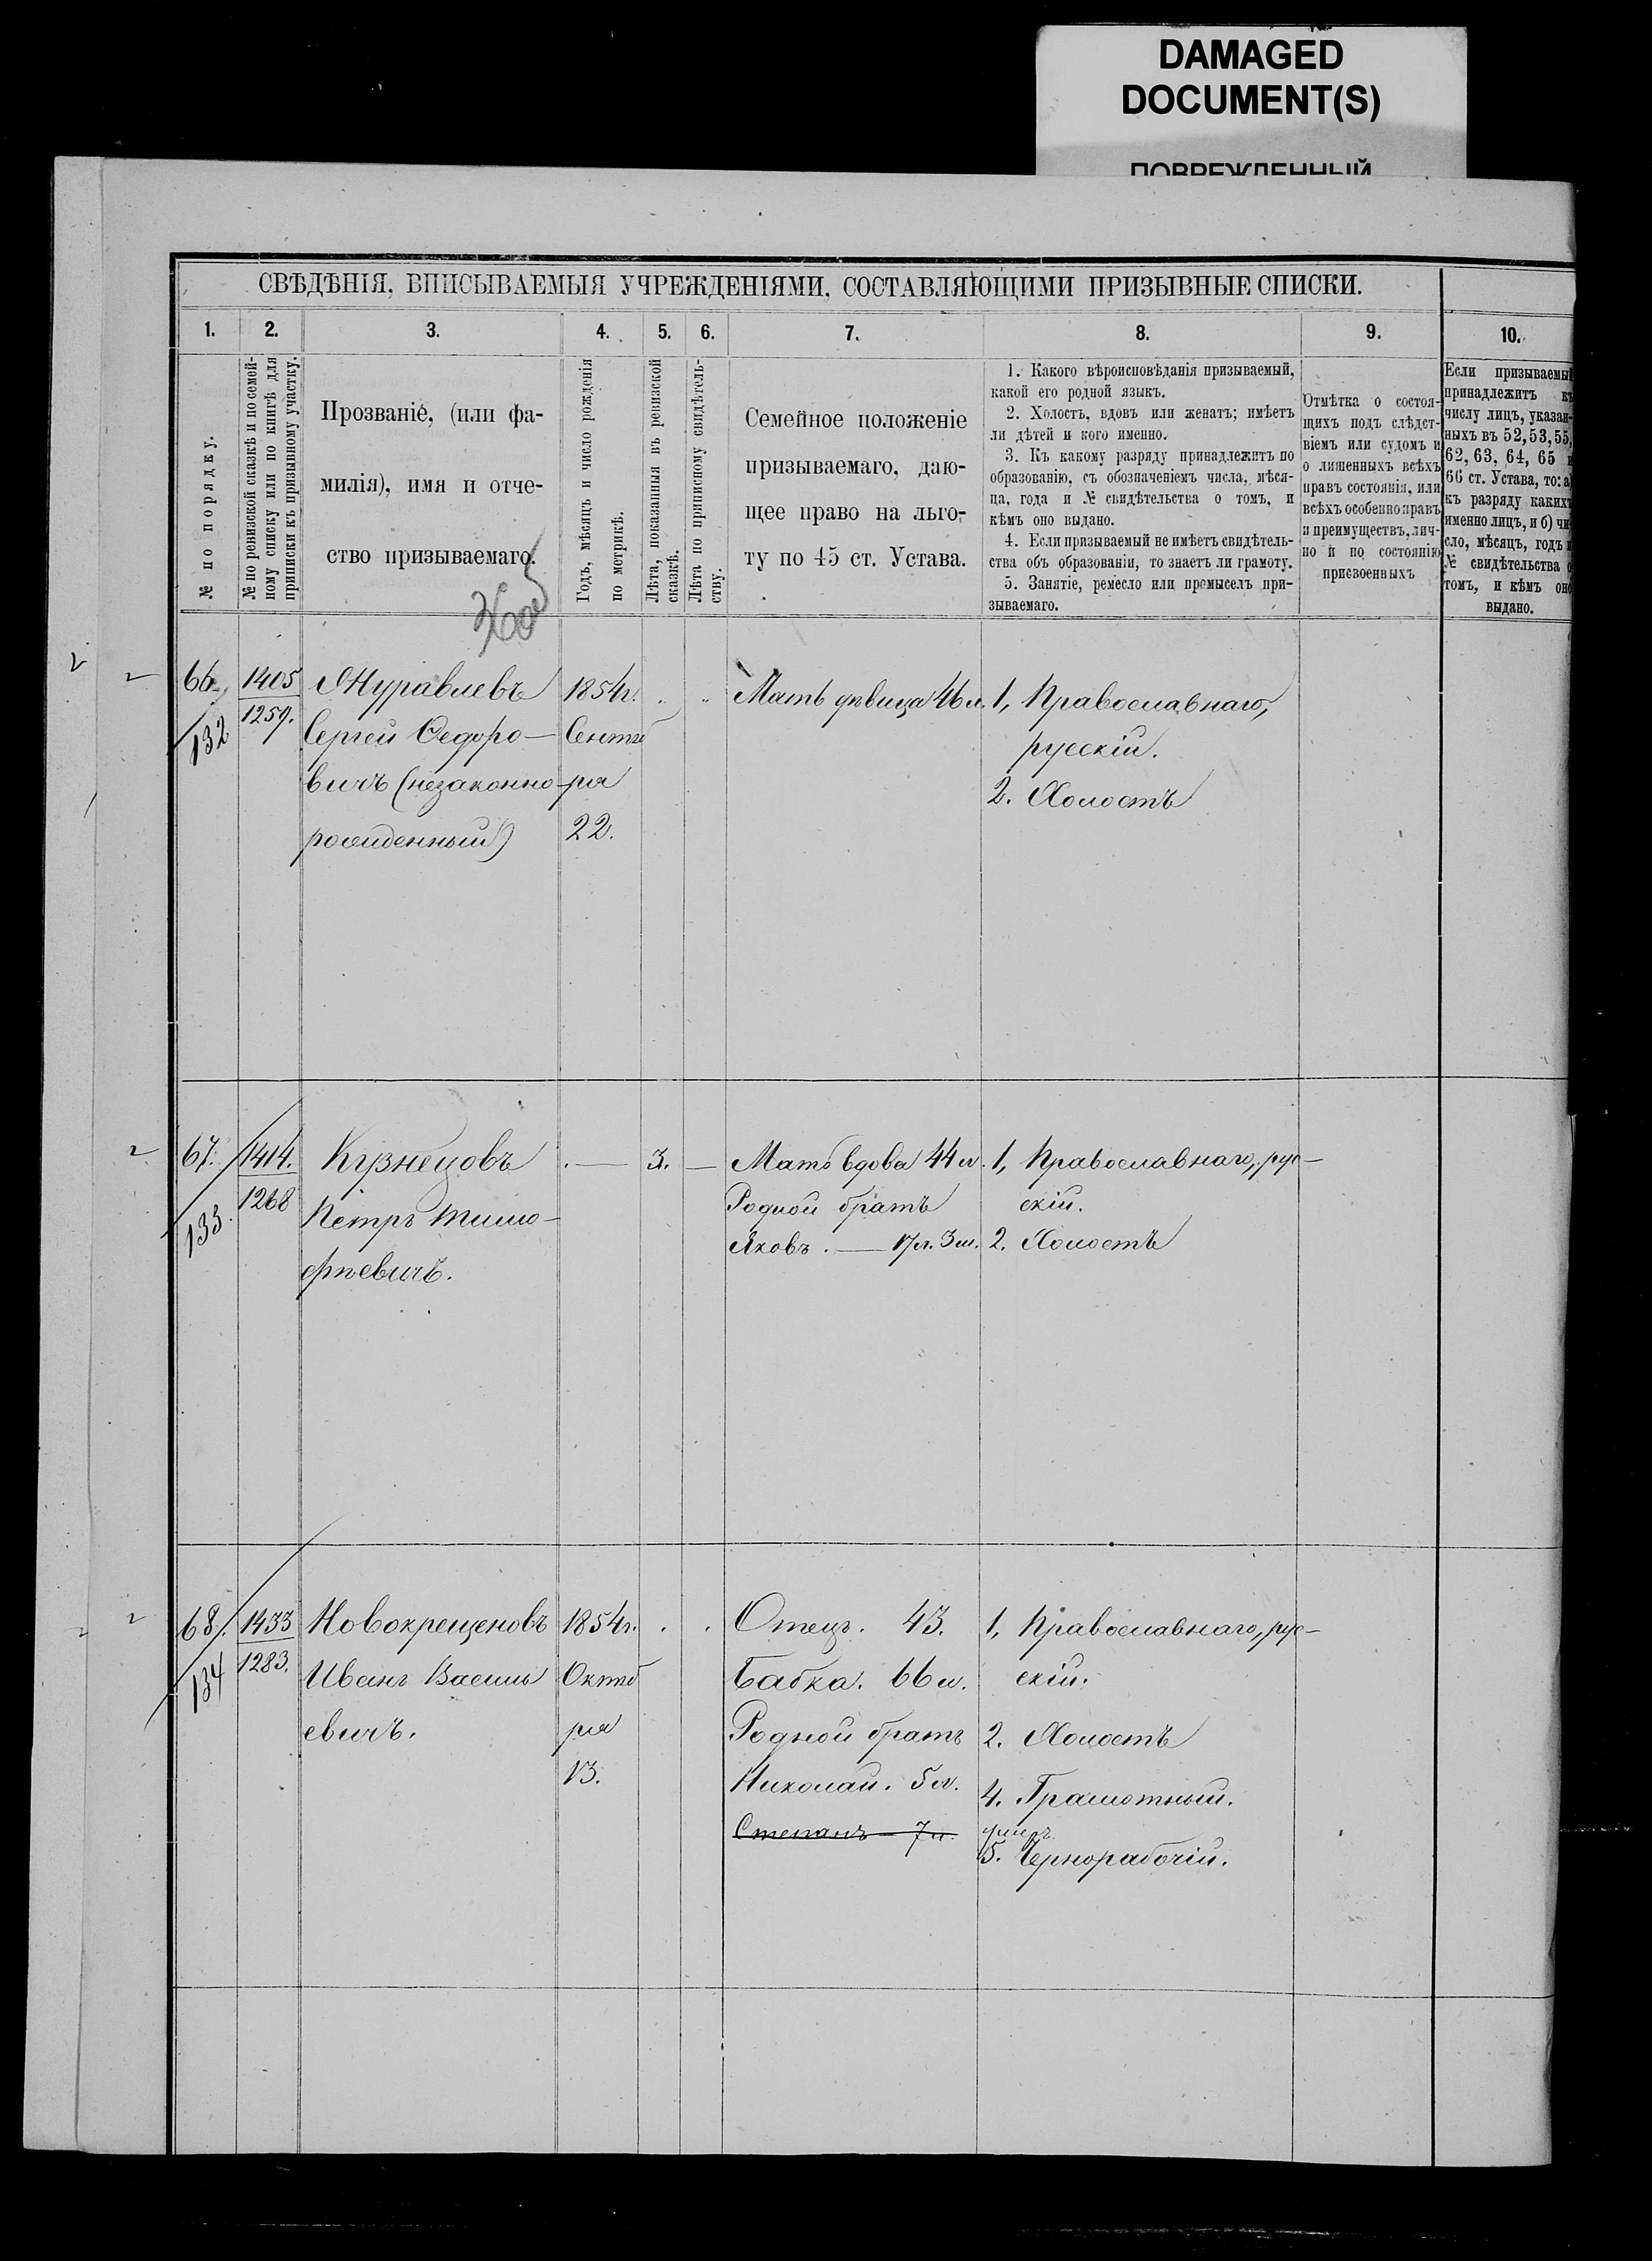 DAMAGED
DOCUMENT(S)
ПОВРЕЖДЕННЫЙ
СВѢДѢНІЯ, ВПИСЫВАЕМЫЯ УЧРЕЖДЕНІЯМИ, СОСТАВЛЯЮЩИМИ ПРИЗЫВНЫЕ СПИСКИ.
1. 2. 3. 4. 5. 6. 7. 8. 9. 10.
№ по порядку.
№ по ревизской сказкѣ и по семей-
ному списку или по книгѣ для
приписки къ призывному участку.
Прозваніе, (или фа-
милія), имя и отче-
ство призываемаго.
Годъ, мѣсяцъ и число рожденія
по метрикѣ.
Лѣта, показанныя въ ревизской
сказкѣ.
Лѣта по приписному свидѣтель-
ству.
Семейное положеніе
призываемаго, даю-
щее право на льго-
ту по 45 ст. Устава.
1. Какого вѣроисповѣданія призываемый,
какой его родной языкъ.
2. Холостъ, вдовъ или женатъ; имѣетъ
ли дѣтей и кого именно.
3. Къ какому разряду принадлежитъ по
образованію, съ обозначеніемъ числа, мѣся-
ца, года и № свидѣтельства о томъ, и
кѣмъ оно выдано.
4. Если призываемый не имѣетъ свидѣтель-
ства объ образованіи, то знаетъ ли грамоту.
5. Занятіе, ремесло или промыселъ при-
зываемаго.
Отмѣтка о состоя-
щихъ подъ слѣдст-
віемъ или судомъ и
о лишенныхъ всѣхъ
правъ состоянія, или
всѣхъ особенно правъ
и преимуществъ, лич-
но и по состоянію
присвоенныхъ
Если призываемый
принадлежитъ къ
числу лицъ, указан-
ныхъ въ 52, 53, 55,
62, 63, 64, 65 и
66 ст. Устава, то: а)
къ разряду какихъ
именно лицъ, и б) чи-
сло, мѣсяцъ, годъ и
№ свидѣтельства о
томъ, и кѣмъ оно
выдано.
66. 1405 Журавлевъ 1854г. Мать дѣвица 46 л. 1, Православнаго,
132 1259. Сергей Федоро- Сентяб русскій.
вичъ (незаконно ря 2. Холостъ
рожденный) 22.
67. 1414. Кузнецовъ — 3. — Мать вдова 44 л. 1, Православнаго, рус-
133. 1268 Петръ Тимо- Родной братъ скій.
фѣевичъ. Яковъ. — 17 л. 3 м. 2. Холостъ
68. 1433 Новокрещеновъ 1854г. Отецъ. 43. 1, Православнаго, рус-
134 1283. Иванъ Василь Октяб Бабка. 66 л. скій.
евичъ. ря Родной братъ 2. Холостъ
13. Николай. 5 л. 4. Грамотный.
Степанъ — 7 л. умеръ.
5. Чернорабочій.